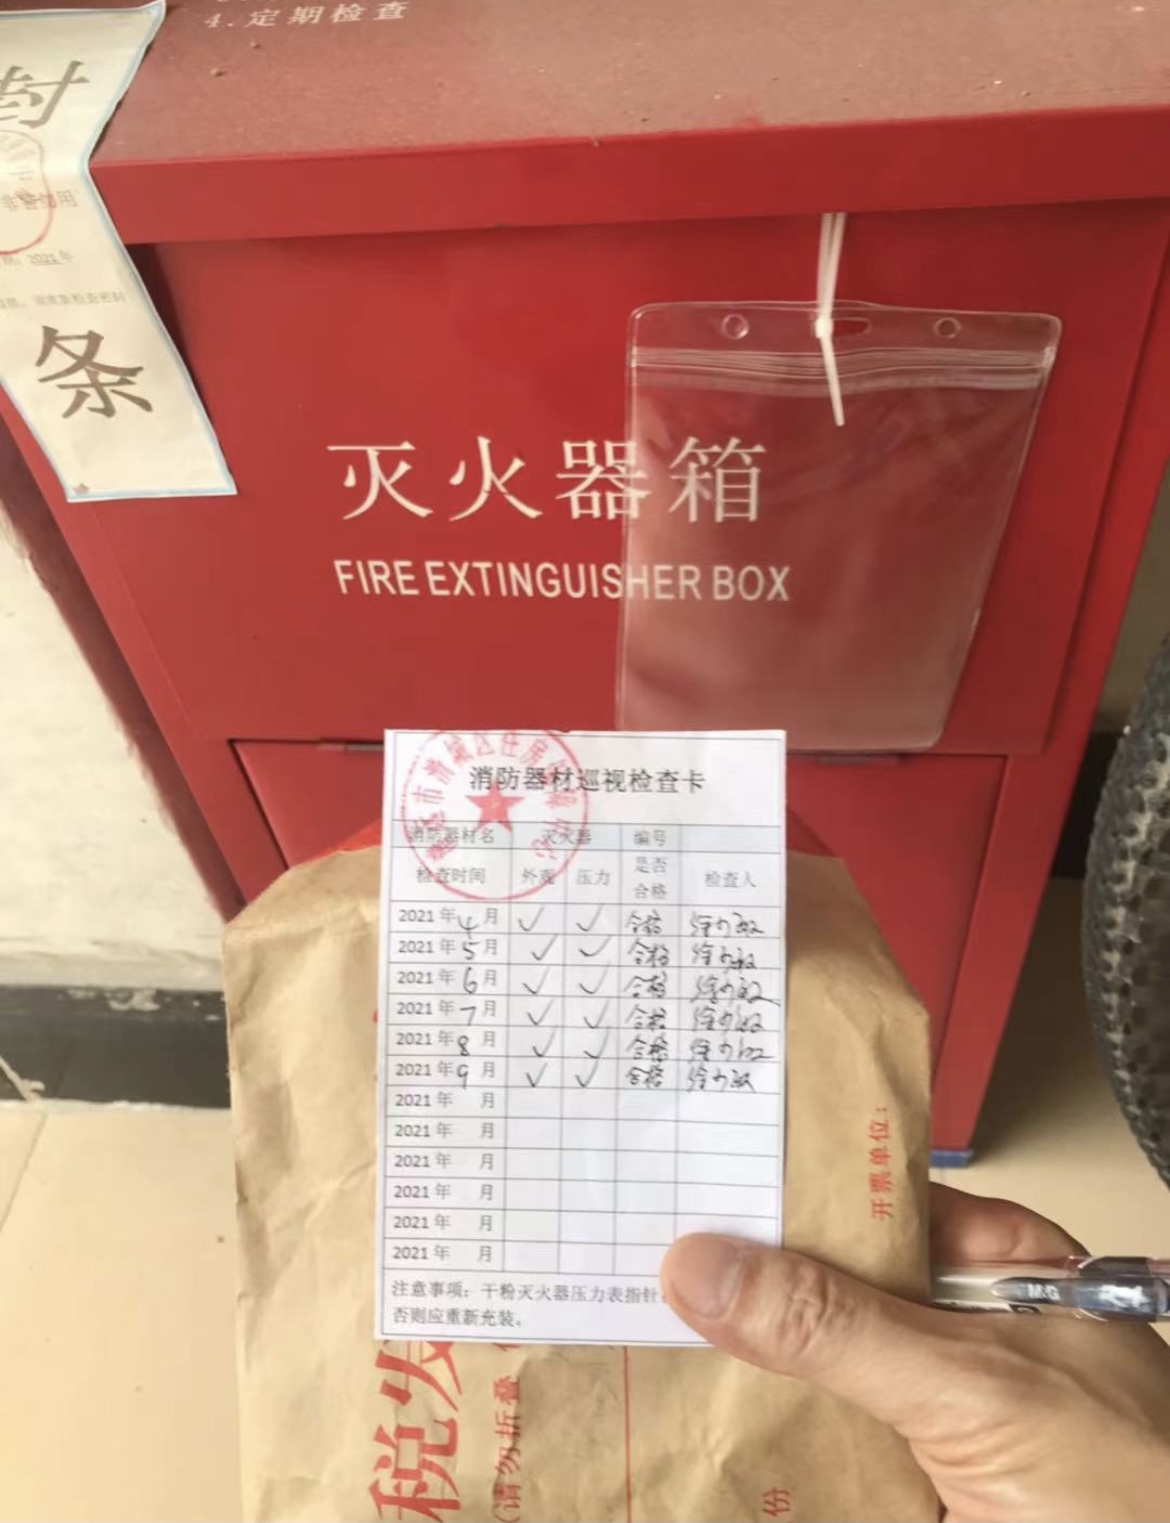 4.定期检查
封
2021年
条
灭火器箱
FIRE EXTINGUISHER BOX
消防器材巡视检查卡
消防器材名 灭火器 编号
检查时间 外观 压力 是否合格 检查人
2021年4月 ✓ ✓ 合格
2021年5月 ✓ ✓ 合格
2021年6月 ✓ ✓ 合格
2021年7月 ✓ ✓ 合格
2021年8月 ✓ ✓ 合格
2021年9月 ✓ ✓ 合格
2021年 月
2021年 月
2021年 月
2021年 月
2021年 月
2021年 月
注意事项：干粉灭火器压力表指针
否则应重新充装。
开票单位：
M&G
税发
(请勿折叠
份